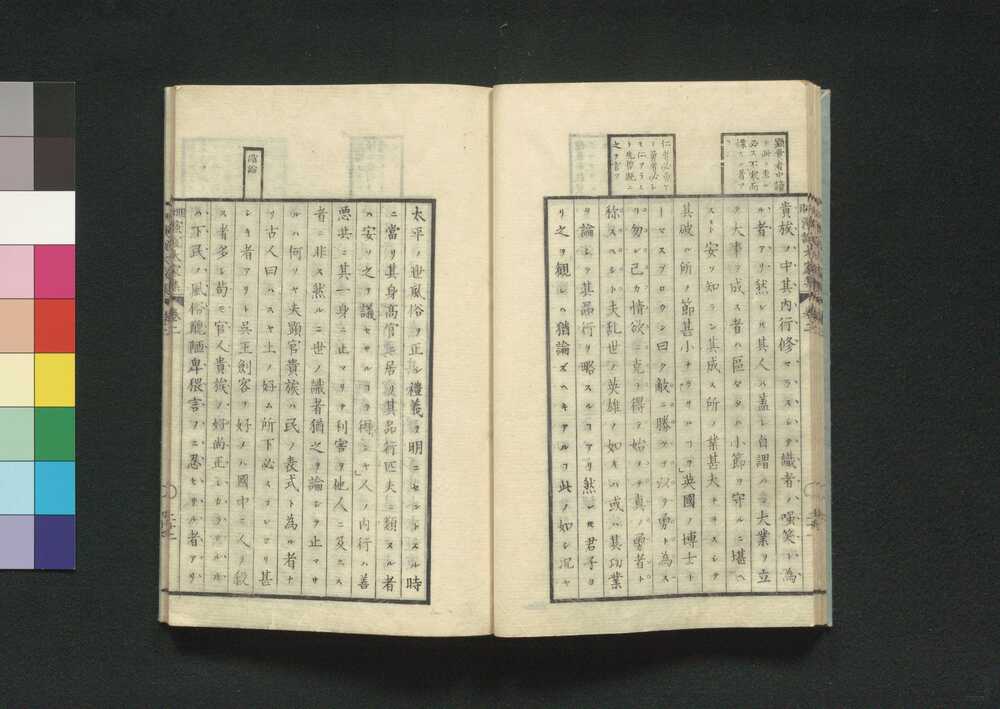 貴族ノ中其内行修マラスシテ識者ハ嗤笑ト為
ル者アリ然レ𪜈其人ハ蓋シ自謂ハラク大業ヲ立
テ大事ヲ成ス者ハ區々タル小節ヲ守ルニ堪ヘ
スト安ソ知ラン其成ス所ノ業甚大ナラスシテ
其破ル所ノ節甚小ナラサルヿヲ」英國ノ博士ト
ーマスブロウン曰ク敵ニ勝ツヲ以テ勇ト為ス
勿レ己カ情欲ニ克ヲ得テ始テ真ノ勇者ト
稱スヘシト夫乱世ノ英雄ノ如キハ或ハ其功業
ヲ論シテ其品行ヲ略スルヿアリ然レ𪜈君子ヨ
リ之ヲ観レハ猶論スヘキアルヿ此ノ如シ况ヤ
仁者必勇アリ
勇者必シモ
仁アラス
ト先聖既ニ
之ヲ言フ
太平ノ世風俗ヲ正シ禮義ヲ明ニセントスル時
ニ當リ其身高官ニ居リ其品行匹夫ニ類スル者
ハ安ソ之ヲ議セサルヿヲ得ンヤ」人ノ内行ハ善
悪共ニ其一身ニ止マリテ利害ヲ他人ニ及ホス
者ニ非ス然ルニ世ノ識者猶之ヲ論シテ止マサ
ルハ何ソヤ夫顕官貴族ハ民ノ表式ト為ル者ナ
リ古人曰ハスヤ上ノ好ム所下必スヨレヨリ甚
シキ者アリト呉王劍客ヲ好メハ國中ニ人ヲ殺
ス者多シ苟モ官人貴族ノ好尚正シカラサルト
ハ下民ノ風俗醜陋卑猥言フニ忍ヒサル者アリ
確論
巻二
巻二